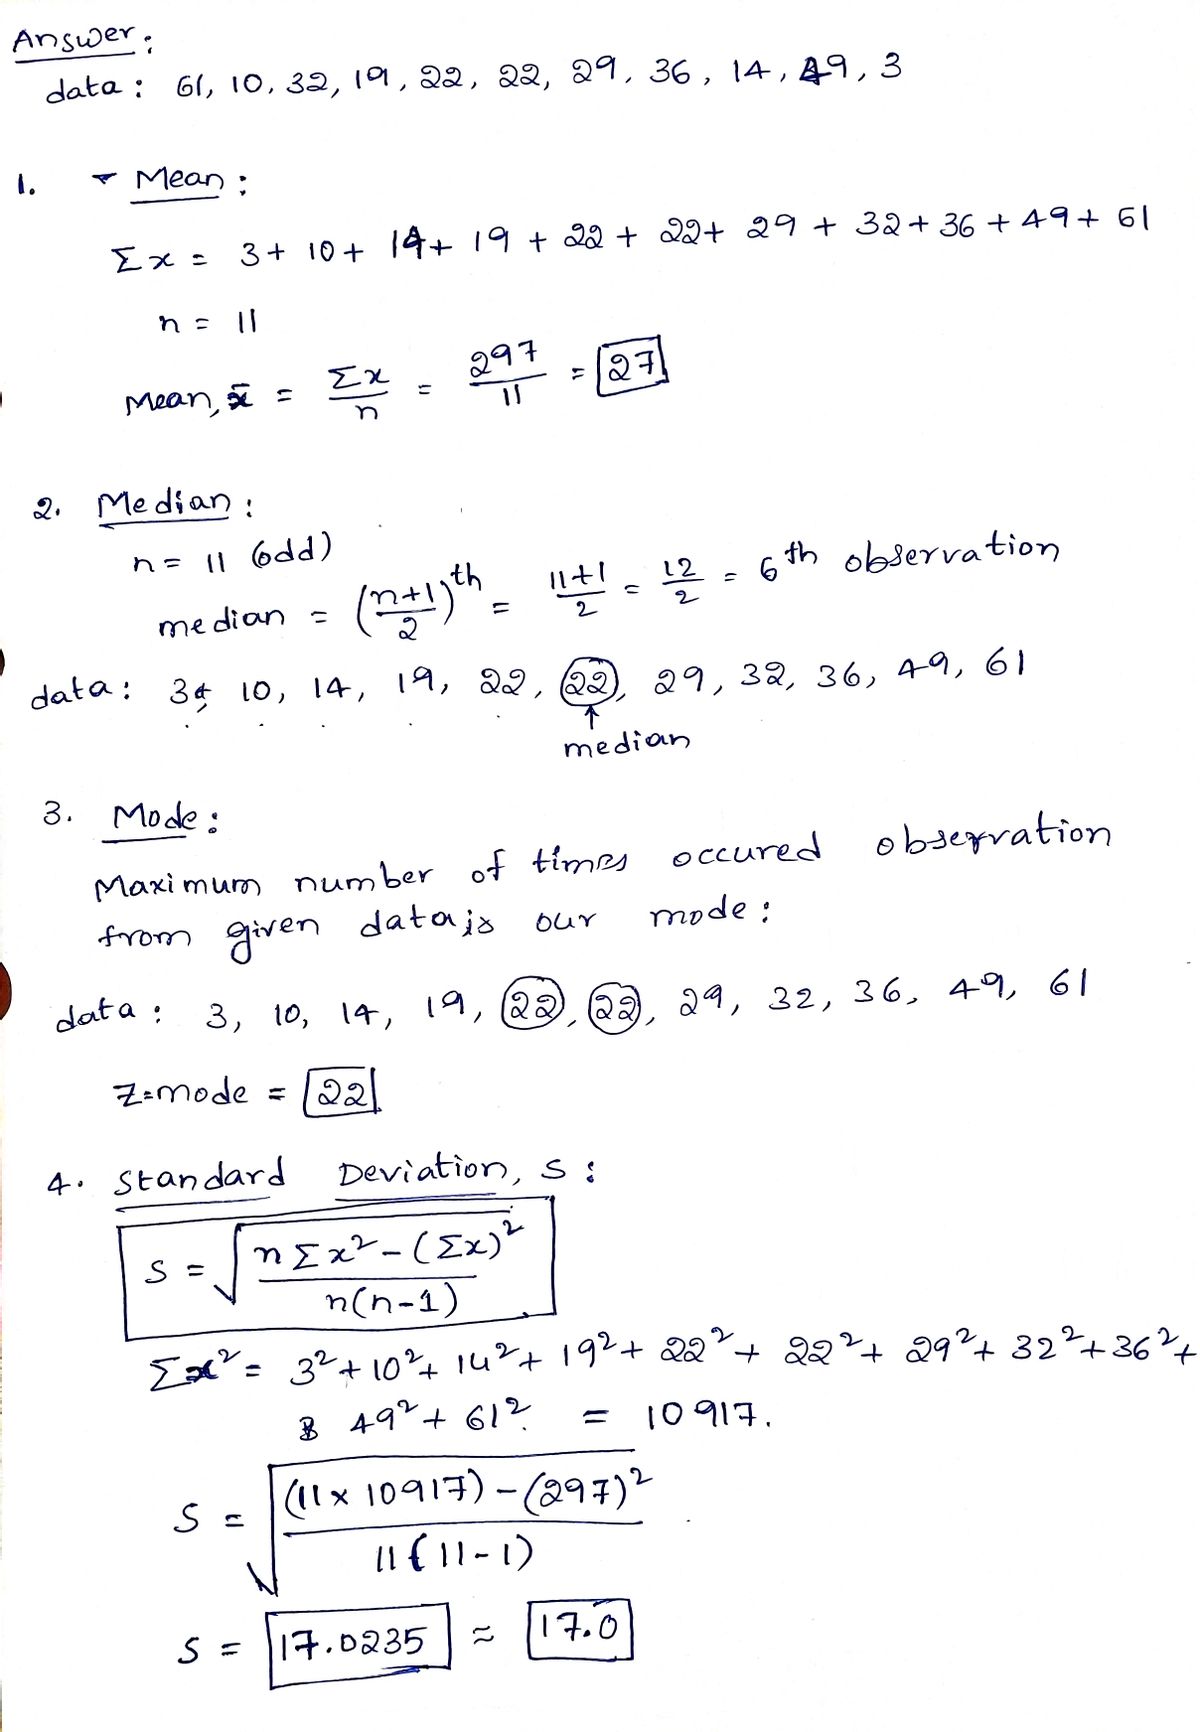 Answer:
data: 61, 10, 32, 19, 22, 22, 29, 36, 14, 49, 3
1. Mean:
Σx = 3+ 10+ 14+ 19 + 22 + 22+ 29 + 32+36+49+ 61
n = 11
Mean, x̄ = Σx/n = 297/11 = 27
2. Median:
n= 11 (odd)
median = (n+1/2)th = 11+1/2 = 12/2 = 6th observation
data: 3, 10, 14, 19, 22, 22, 29, 32, 36, 49, 61
↑
median
3. Mode:
Maximum number of times occured observation
from given data is our mode:
data: 3, 10, 14, 19, 22, 22, 29, 32, 36, 49, 61
Z=mode = 22
4. Standard Deviation, S:
S = √(nΣx²-(Σx)²/n(n-1))
Σx² = 3²+10²+14²+19²+22²+22²+29²+32²+36²+
49²+61². = 10917.
S = √((11×10917)-(297)²/11(11-1))
S = 17.0235 ≈ 17.0